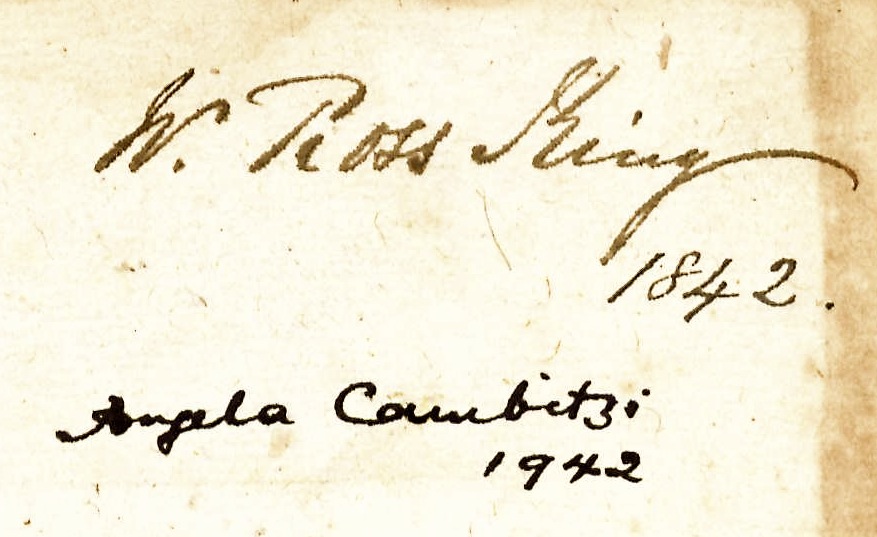 W. Ross King
1842.
Angela Cambitzi
1942